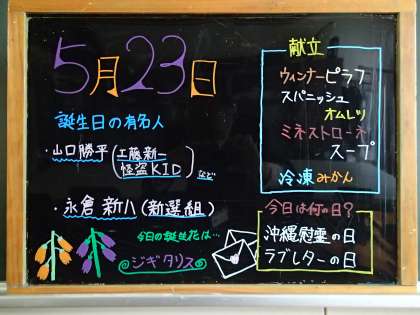 5月23日
誕生日の有名人
・山口勝平(工藤新一
怪盗KID)など
・永倉 新八(新選組)
今日の誕生花は…
◎ジギタリス◎
献立
ウィンナーピラフ
スパニッシュ
オムレツ
ミネストローネ
スープ
冷凍みかん
今日は何の日?
沖縄慰霊の日
ラブレターの日